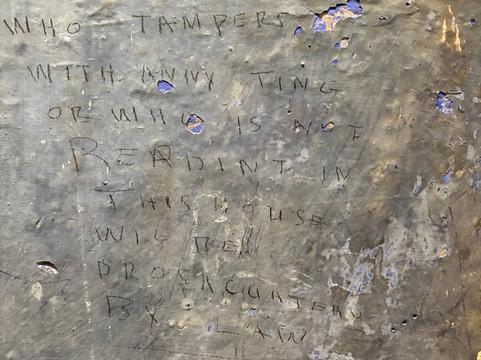 WHO TAMPERS
WITH ANNY TING
OR WHO IS NOT
READINT IN
THIS HOUSE
WIL BE
PROSACUATEAU
BY LAW